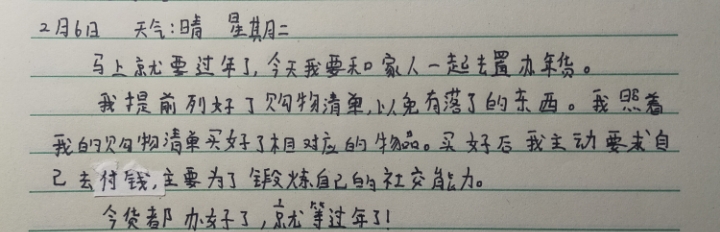 2月6日 天气:晴 星期二
马上就要过年了,今天我要和家人一起去置办年货。
我提前列好了购物清单,以免有落了的东西。我照着
我的购物清单买好了相对应的物品。买好后我主动要求自
己去付钱,主要为了锻炼自己的社交能力。
今货都办好了,就等过年了!